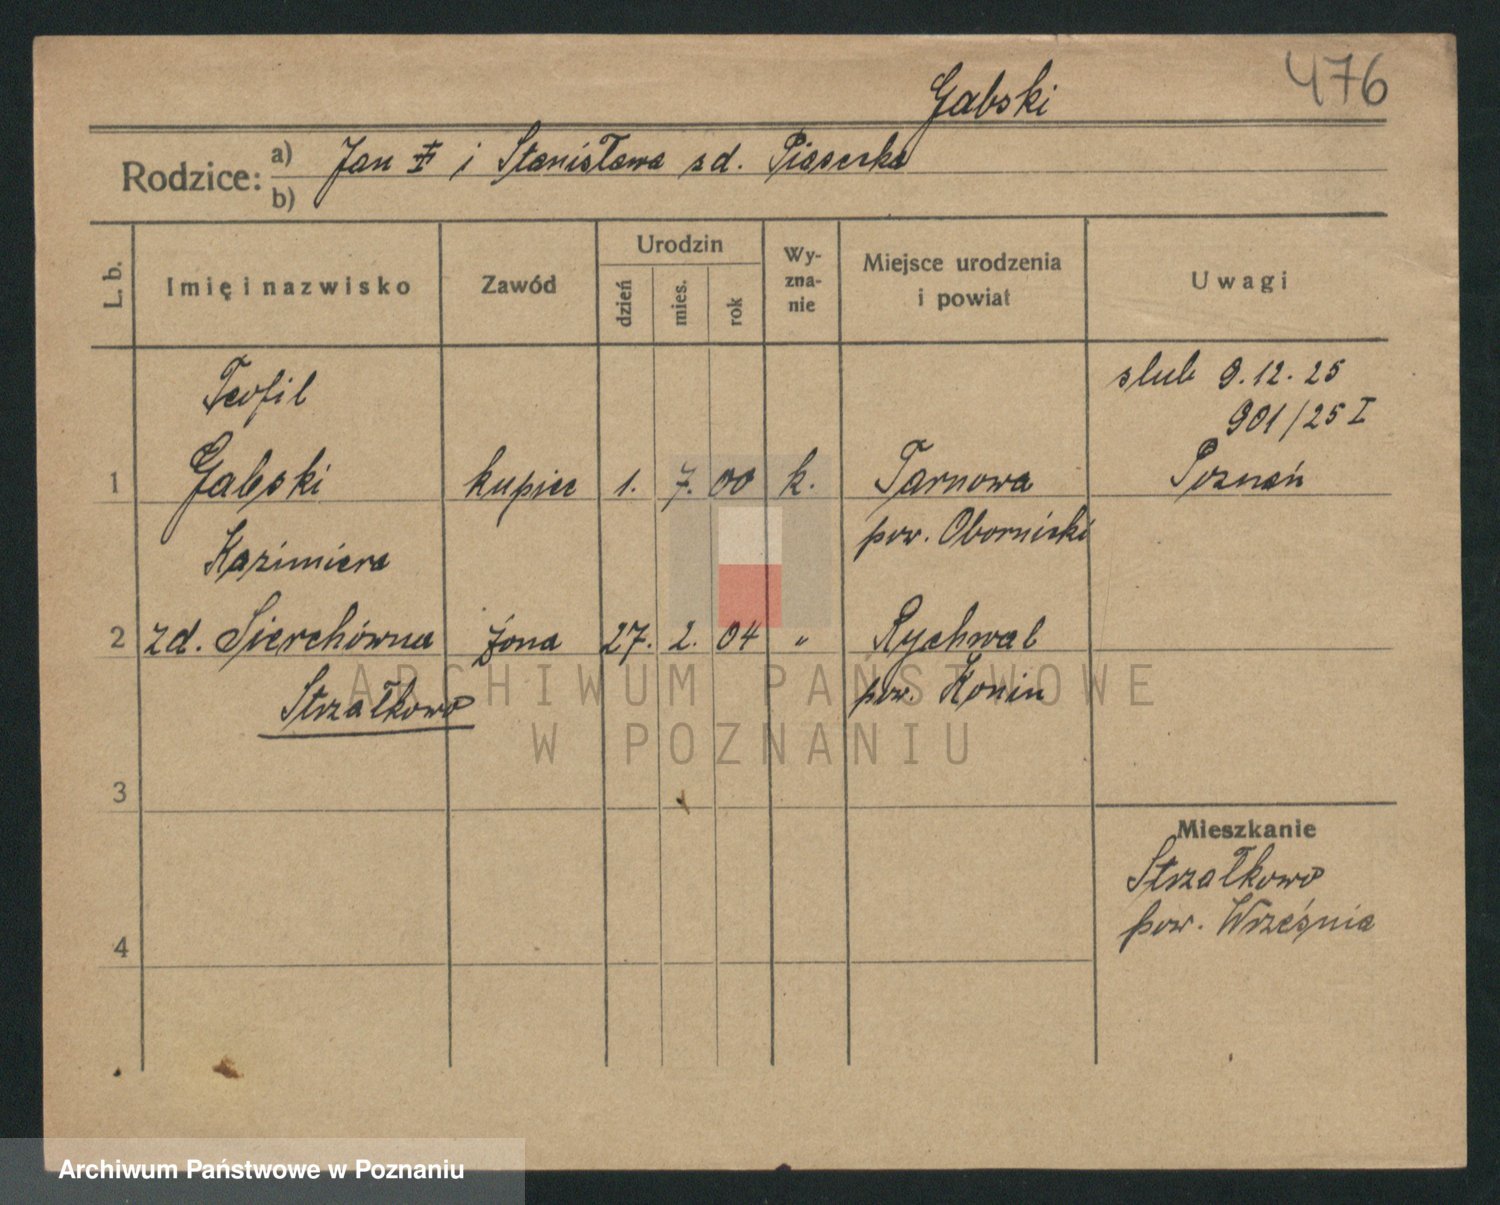 476
Gabski
Rodzice: a) Jan ‡ i Stanisława zd. Piasecka
b)
L. b. Imię i nazwisko Zawód Urodzin dzień mies. rok Wyznanie Miejsce urodzenia i powiat Uwagi
Teofil ślub 9.12.25
901/25 I
1 Gabski kupiec 1. 7. 00 k. Tarnowa Poznań
pow. Obornicki
Kazimiera
2 zd. Sierchówna żona 27. 2. 04 " Rychwał
Strzałkowo pow. Konin
ARCHIWUM PAŃSTWOWE
W POZNANIU
3
Mieszkanie
Strzałkowo
pow. Września
4
Archiwum Państwowe w Poznaniu